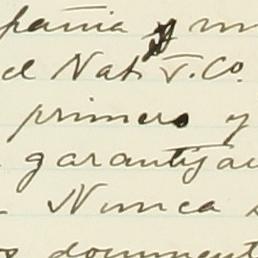 pañia y m
el Nat. T. Co.
primero y
garantiza
. Nunca
os document